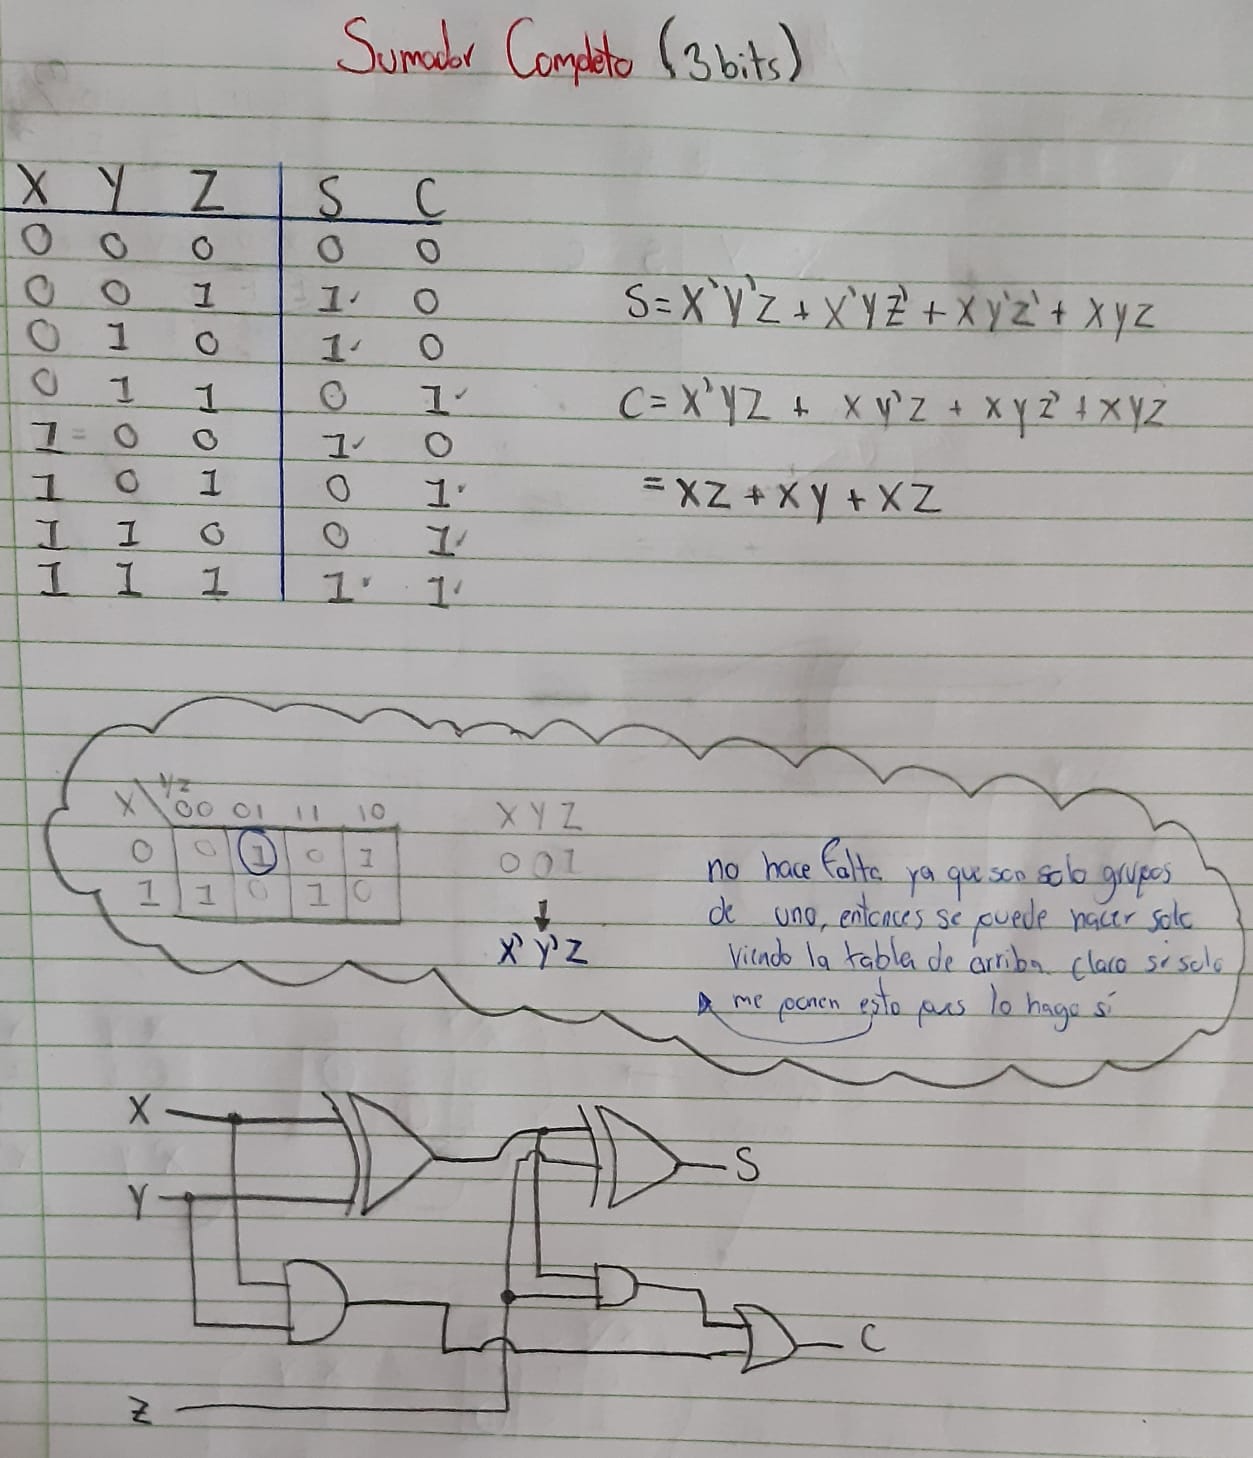 Sumador Completo (3 bits)
X Y Z S C
0 0 0 0 0
0 0 1 1 0
0 1 0 1 0
0 1 1 0 1
1 0 0 1 0
1 0 1 0 1
1 1 0 0 1
1 1 1 1 1
S = X'Y'Z + X'YZ' + XY'Z' + XYZ
C = X'YZ + XY'Z + XYZ' + XYZ
= XZ + XY + XZ
X YZ 00 01 11 10
0 0 1 0 1
1 1 0 1 0
X Y Z
0 0 1
↓
X'Y'Z
no hace falta ya que son solo grupos
de uno, entonces se puede hacer solo
viendo la tabla de arriba. claro si solo
me ponen esto pues lo hago sí
X
Y
S
C
Z